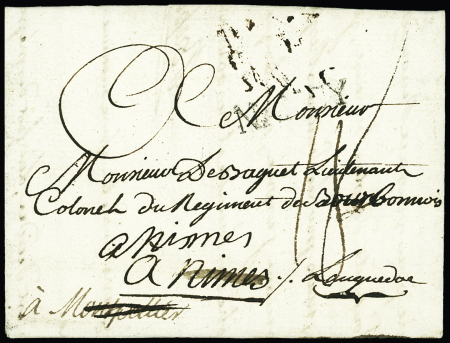 A Monsieur
Monsieur De Baquet Lieutenant
Colonel du Regiment de Bourbonnois
a nimes
A nimes /. Languedoc
à Montpellier